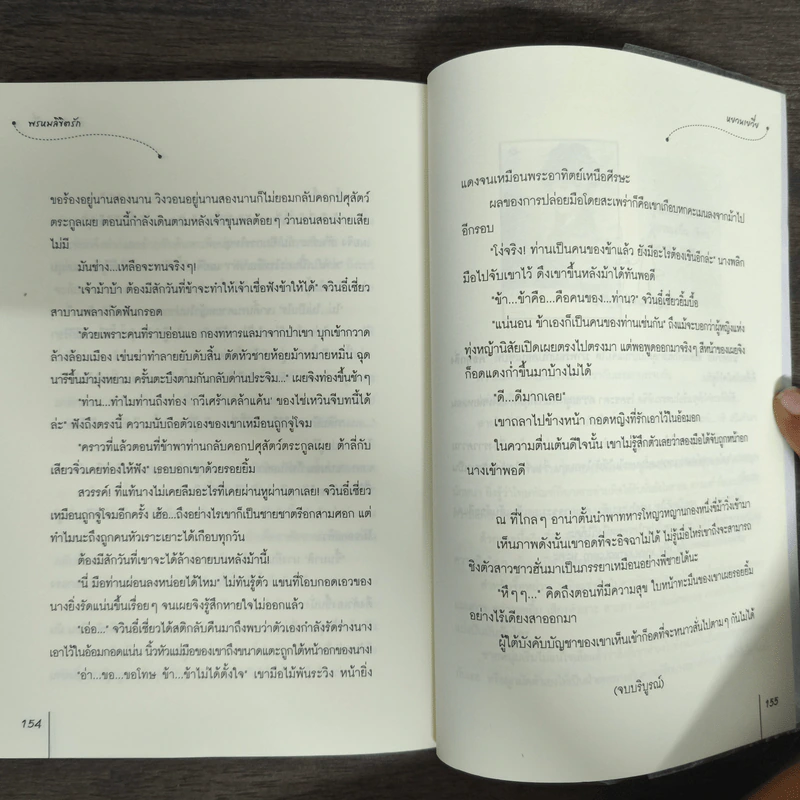 พรหมลิขิตรัก
ขอร้องอยู่นานสองนาน วิงวอนอยู่นานสองนานก็ไม่ยอมกลับคอกปศุสัตว์
ตระกูลเผย ตอนนี้กำลังเดินตามหลังเจ้าขุนพลต้อยๆ ว่านอนสอนง่ายเสีย
ไม่มี
มันช่าง...เหลือจะทนจริงๆ!
"เจ้าม้าบ้า ต้องมีสักวันที่ข้าจะทำให้เจ้าเชื่อฟังข้าให้ได้" จวินอี่เซี่ยว
สาบานพลางกัดฟันกรอด
"ด้วยเพราะคนที่ราบอ่อนแอ กองทหารแลมาจากป่าเขา บุกเข้ากวาด
ล้างล้อมเมือง เข่นฆ่าทำลายยับดับสิ้น ตัดหัวชายห้อยม้าหมายหมิ่น ฉุด
นารีขึ้นม้ามุ่งหยาม ครั้นตะบึงตามกันกลับด่านประจิม..." เผยจิงท่องขึ้นช้าๆ
"ท่าน...ทำไมท่านถึงท่อง 'กวีเศร้าเคล้าแค้น' ของไช่เหวินจีบทนี้ได้
ล่ะ" ฟังถึงตรงนี้ ความนับถือตัวเองของเขาเหมือนถูกจู่โจม
"คราวที่แล้วตอนที่ข้าพาท่านกลับคอกปศุสัตว์ตระกูลเผย ต้าสี่กับ
เสี่ยวจิ่วเคยท่องให้ฟัง" เธอบอกเขาด้วยรอยยิ้ม
สวรรค์! ที่แท้นางไม่เคยลืมอะไรที่เคยผ่านหูผ่านตาเลย! จวินอี่เซี่ยว
เหมือนถูกจู่โจมอีกครั้ง เฮ้อ...ถึงอย่างไรเขาก็เป็นชายชาตรีอกสามศอก แต่
ทำไมนะถึงถูกคนหัวเราะเยาะได้เกือบทุกวัน
ต้องมีสักวันที่เขาจะได้ล้างอายบนหลังม้านี้!
"นี่ มือท่านผ่อนลงหน่อยได้ไหม" ไม่ทันรู้ตัว แขนที่โอบกอดเอวของ
นางยิ่งรัดแน่นขึ้นเรื่อยๆ จนเผยจิงรู้สึกหายใจไม่ออกแล้ว
"เอ่อ..." จวินอี่เซี่ยวได้สติกลับคืนมาถึงพบว่าตัวเองกำลังรัดร่างนาง
เอาไว้ในอ้อมกอดแน่น นิ้วหัวแม่มือของเขาถึงขนาดแตะถูกใต้หน้าอกของนาง!
"อ๋า...ขอ...ขอโทษ ข้า...ข้าไม่ได้ตั้งใจ" เขามือไม้พันระวิง หน้ายิ่ง
154
หยางเยวี่ย
แดงจนเหมือนพระอาทิตย์เหนือศีรษะ
ผลของการปล่อยมือโดยสะเพร่าก็คือเขาเกือบหกคะเมนลงจากม้าไป
อีกรอบ
"โง่จริง! ท่านเป็นคนของข้าแล้ว ยังมีอะไรต้องเขินอีกล่ะ" นางพลิก
มือไปจับเขาไว้ ดึงเขาขึ้นหลังม้าได้ทันพอดี
"ข้า...ข้าคือ...คือคนของ...ท่าน?" จวินอี่เซี่ยวยิ้มบื้อ
"แน่นอน ข้าเองก็เป็นคนของท่านเช่นกัน" ถึงแม้จะบอกว่าผู้หญิงแห่ง
ทุ่งหญ้านิสัยเปิดเผยตรงไปตรงมา แต่พอพูดออกมาจริงๆ สีหน้าของเผยจิง
ก็อดแดงก่ำขึ้นมาบ้างไม่ได้
"ดี...ดีมากเลย"
เขาถลาไปข้างหน้า กอดหญิงที่รักเอาไว้ในอ้อมอก
ในความตื่นเต้นดีใจนั้น เขาไม่รู้สึกตัวเลยว่าสองมือได้จับถูกหน้าอก
นางเข้าพอดี
ณ ที่ไกลๆ อาน่าตั้นนำพาทหารโหญวหญานกองหนึ่งขี่ม้าวิ่งเข้ามา
เห็นภาพดังนั้นเขาอดที่จะอิจฉาไม่ได้ ไม่รู้เมื่อไหร่เขาถึงจะสามารถ
ชิงตัวสาวชาวฮั่นมาเป็นภรรยาเหมือนอย่างพี่ชายได้นะ
"หึๆๆ..." คิดถึงตอนที่มีความสุข ใบหน้าทะมึนของเขาเผยรอยยิ้ม
อย่างไร้เดียงสาออกมา
ผู้ใต้บังคับบัญชาของเขาเห็นเข้าก็อดที่จะหนาวสั่นไปตามๆ กันไม่ได้
(จบบริบูรณ์)
155